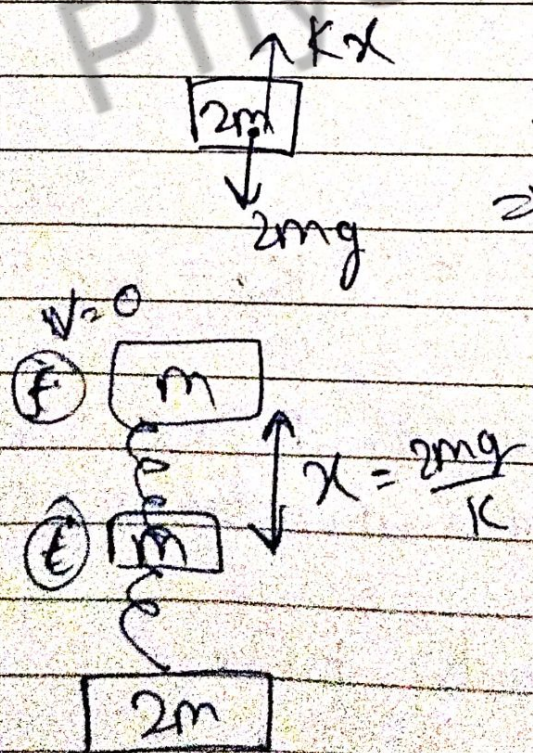 Phy
Kx
2m
2mg
=>
V=0
f m
x = 2mg/K
i m
2m